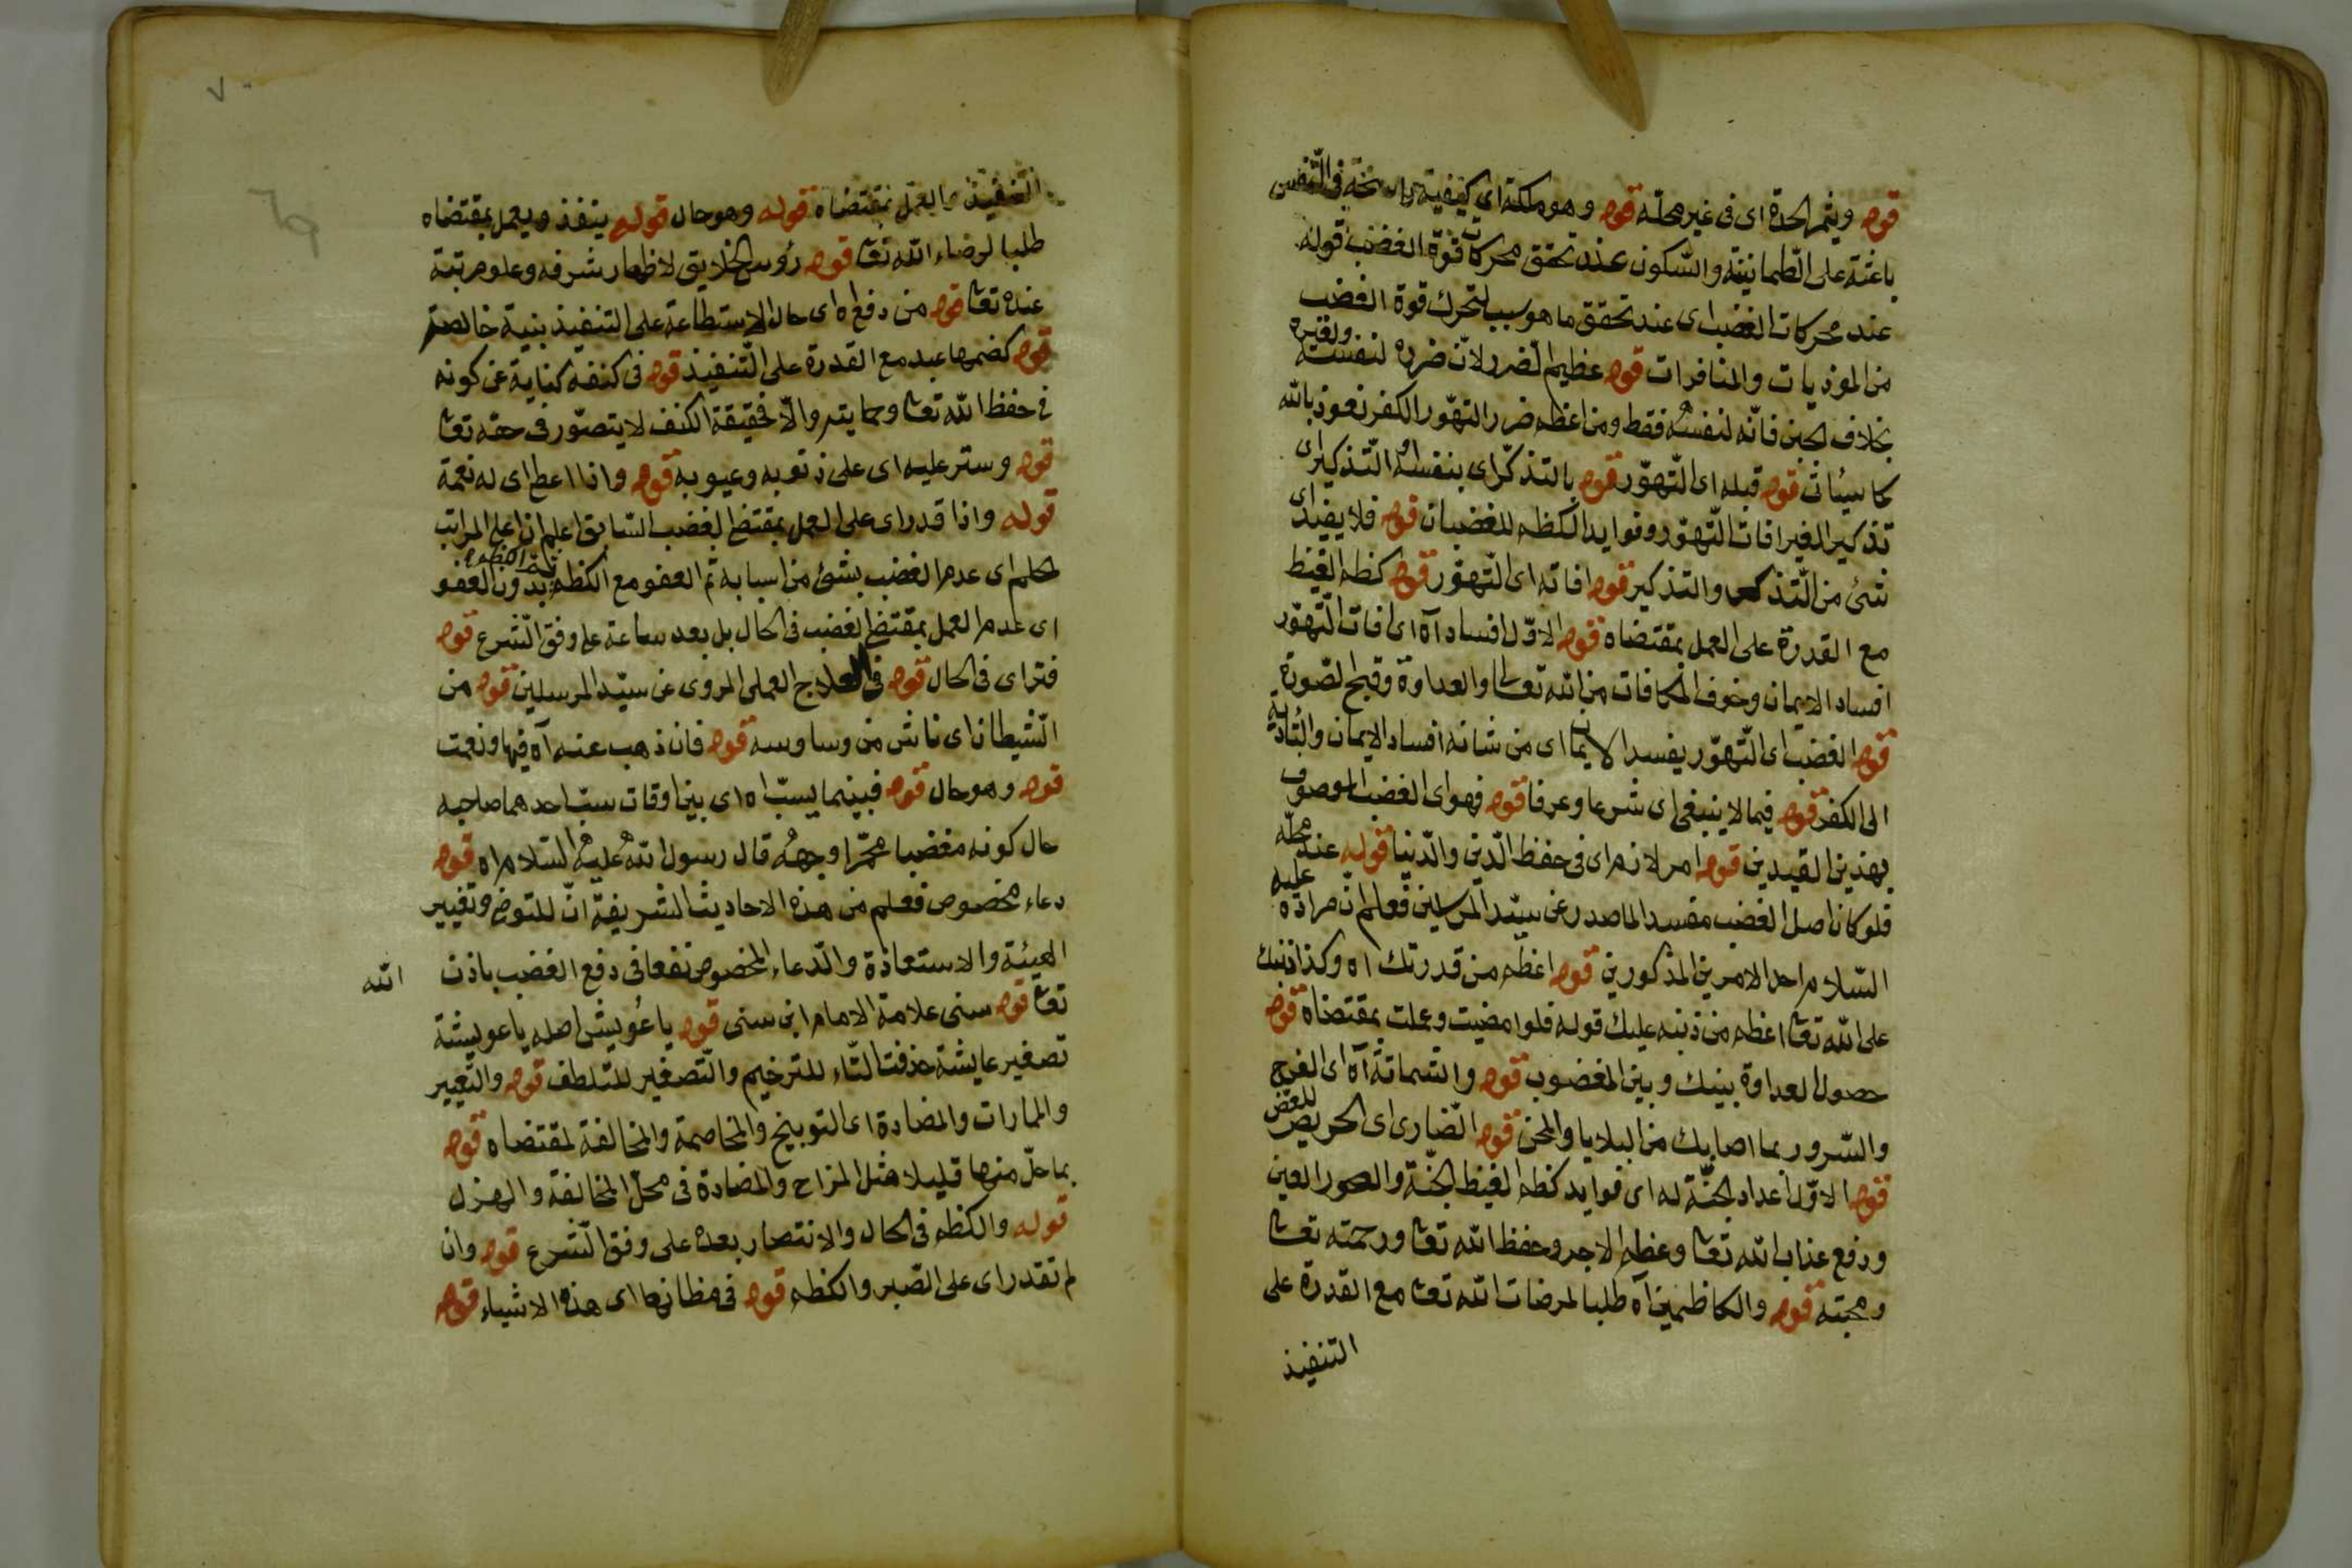 قوله ويثمر الحدة اى فى غير محلّه قوله وهو ملكة اى كيفية راسخة فى النّفس
باعثة على الطّمانينة والسّكون عند تحقق محركات قوّة الغضب قوله
عند محركات الغضب اى عند تحقق ما هو سبب لتحرك قوة الغضب
من الموذيات والمنافرات قوله عظيم الضرر لان ضرره لنفسه ولغيره
بخلاف الجبن فانّه لنفسه فقط ومن اعظم ضرر التهوّر الكفر نعوذ بالله
كما سيئاتى قوله قبله اى التّهوّر قوله بالتذكّر اى بنفسه او التّذكير اى
تذكير الغير افات التّهوّر وفوايد الكظم للغضبان قوله فلا يفيد اى
شئ من التّذكر والتذكير قوله افاته اى التّهوّر قوله كظم الغيظ
مع القدرة على العمل بمقتضاه قوله الاوّل افساد آه اى افات التّهوّر
افساد الايمان وخوف المكافات من الله تعالى والعداوة وقبح الصّورة
قوله الغضب اى التّهوّر يفسد الايمان اى من شانه افساد الايمان والتّادية
الى الكفر قوله فيما لا ينبغى اى شرعا وعرفا قوله فهو اى الغضب الموصوف
بهذين القيدين قوله امر لازم اى فى حفظ الدّين والدّنيا قوله عند محلّه
فلو كان اصل الغضب مفسد الما صدر عن سيّد المرسلين فعلم انّ مراده عليه
السّلام احد الامرين المذكورين قوله اعظم من قدرتك اه وكذا ذنبك
على الله تعا اعظم من ذنبه عليك قوله فلو امضيت وعملت بمقتضاه قوله
حصول العداوة بينك وبين المغضوب قوله والشماتة آه اى الفرح
والسّرور بما اصابك من البلايا والمحن قوله الضّارى اى الحريص للعضّ
قوله الاوّل اعداد الجنّة له اى فوايد كظم الغيظ الجنّة والحور العين
ودفع عذاب الله تعا وعظم الاجر وحفظ الله تعا ورحمته تعا
ومحبته قوله والكاظمين آه طلبا لمرضات الله تعا مع القدرة على
التنفيذ
٧٠
التنفيذ والعمل بمقتضاه قوله وهو حال قوله ينفذ ويعمل بمقتضاه
طلبا لرضاء الله تعا قوله رؤس الخلايق لاظهار شرفه وعلو مرتبته
عنده تعا قوله من دفع اه اى حال الاستطاعة على التنفيذ بنية خالصة
قوله كضمها عبد مع القدرة على التّنفيذ قوله فى كنفه كناية عن كونه
فى حفظ الله تعا وحمايته والّا فحقيقة الكنف لا يتصوّر فى حقه تعا
قوله وستر عليه اى على ذنوبه وعيوبه قوله واذا اعطى اى له نعمة
قوله واذا قدر اى على العمل بمقتضى الغضب السّابق اعلم ان اعلى المراتب
الحلم اى عدم الغضب بشئ من اسبابه ثم العفو مع الكظم ثمّ الكظم بدون العفو
اى عدم العمل بمقتضى الغضب فى الحال بل بعد ساعة على وفق الشّرع قوله
فتر اى فى الحال قوله فى العلاج العملى المروى عن سيّد المرسلين قوله من
الشّيطان اى ناش من وساوسه قوله فان ذهب عنه آه فيها ونعمت
قوله وهو حال قوله فبينما يسبّ اه اى بين اوقات سبّ احدهما صاحبه
حال كونه مغضبا محمّرا وجهه قال رسول الله عليه السّلام اه قوله
دعاء مخصوص فعلم من هذه الاحاديث الشريفة انّ للتوضى وتغيير
الهيئة والاستعاذة والدّعاء المخصوص نفعا فى دفع الغضب باذن الله
تعا قوله سنى علامة الامام ابن سنى قوله يا عُويش اصله يا عويشة
تصغير عايشة حذفت التّاء للترخيم والتّصغير للتلطف قوله والتّعيير
والمارات والمضادة اى التوبيخ والمخاصمة والمخالفة لمقتضاه قوله
بما حلّ منها قليلا مثل المزاح والمضادة فى محلّ المخالفة والهزل
قوله والكظم فى الحال والانتصار بعده على وفق الشّرع قوله وان
لم تقدر اى على الصّبر والكظم قوله فى مظانها اى هذه الاشياء قوله